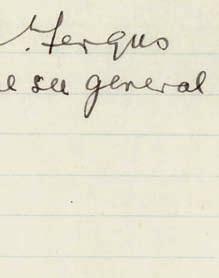 Fergus
see general